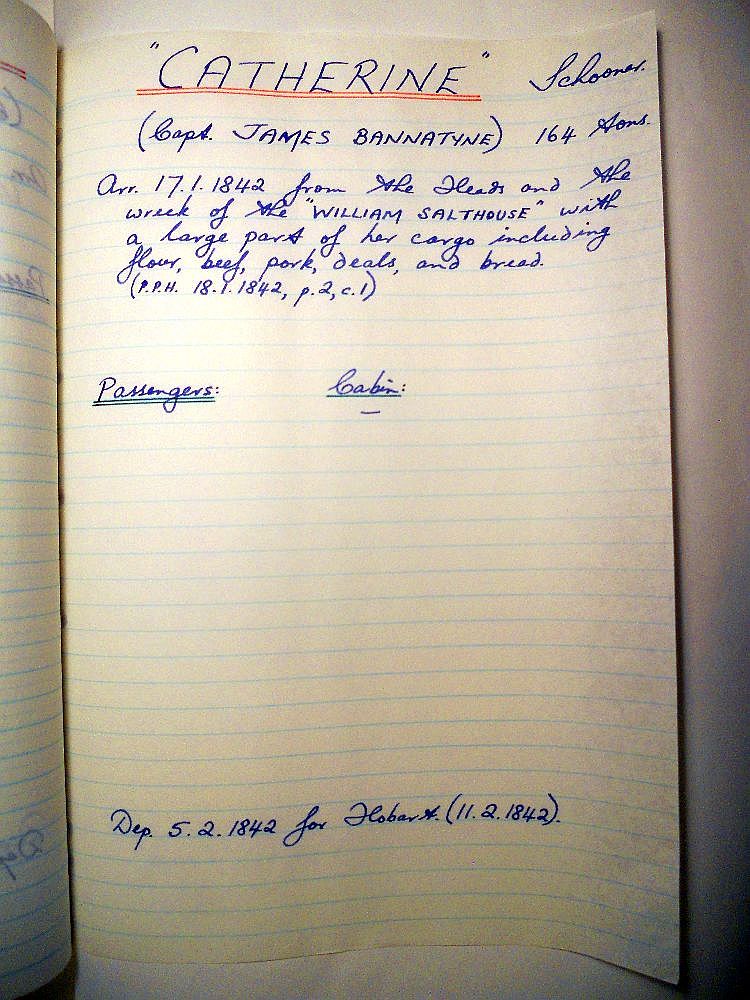 "CATHERINE" Schooner.
(Capt. JAMES BANNATYNE) 164 tons.
Arr. 17.1.1842 from the Heads and the
wreck of the "WILLIAM SALTHOUSE" with
a large part of her cargo including
flour, beef, pork, deals, and bread.
(P.P.H. 18.1.1842, p.2, c.1)
Passengers: Cabin:
—
Dep. 5.2.1842 for Hobart. (11.2.1842).